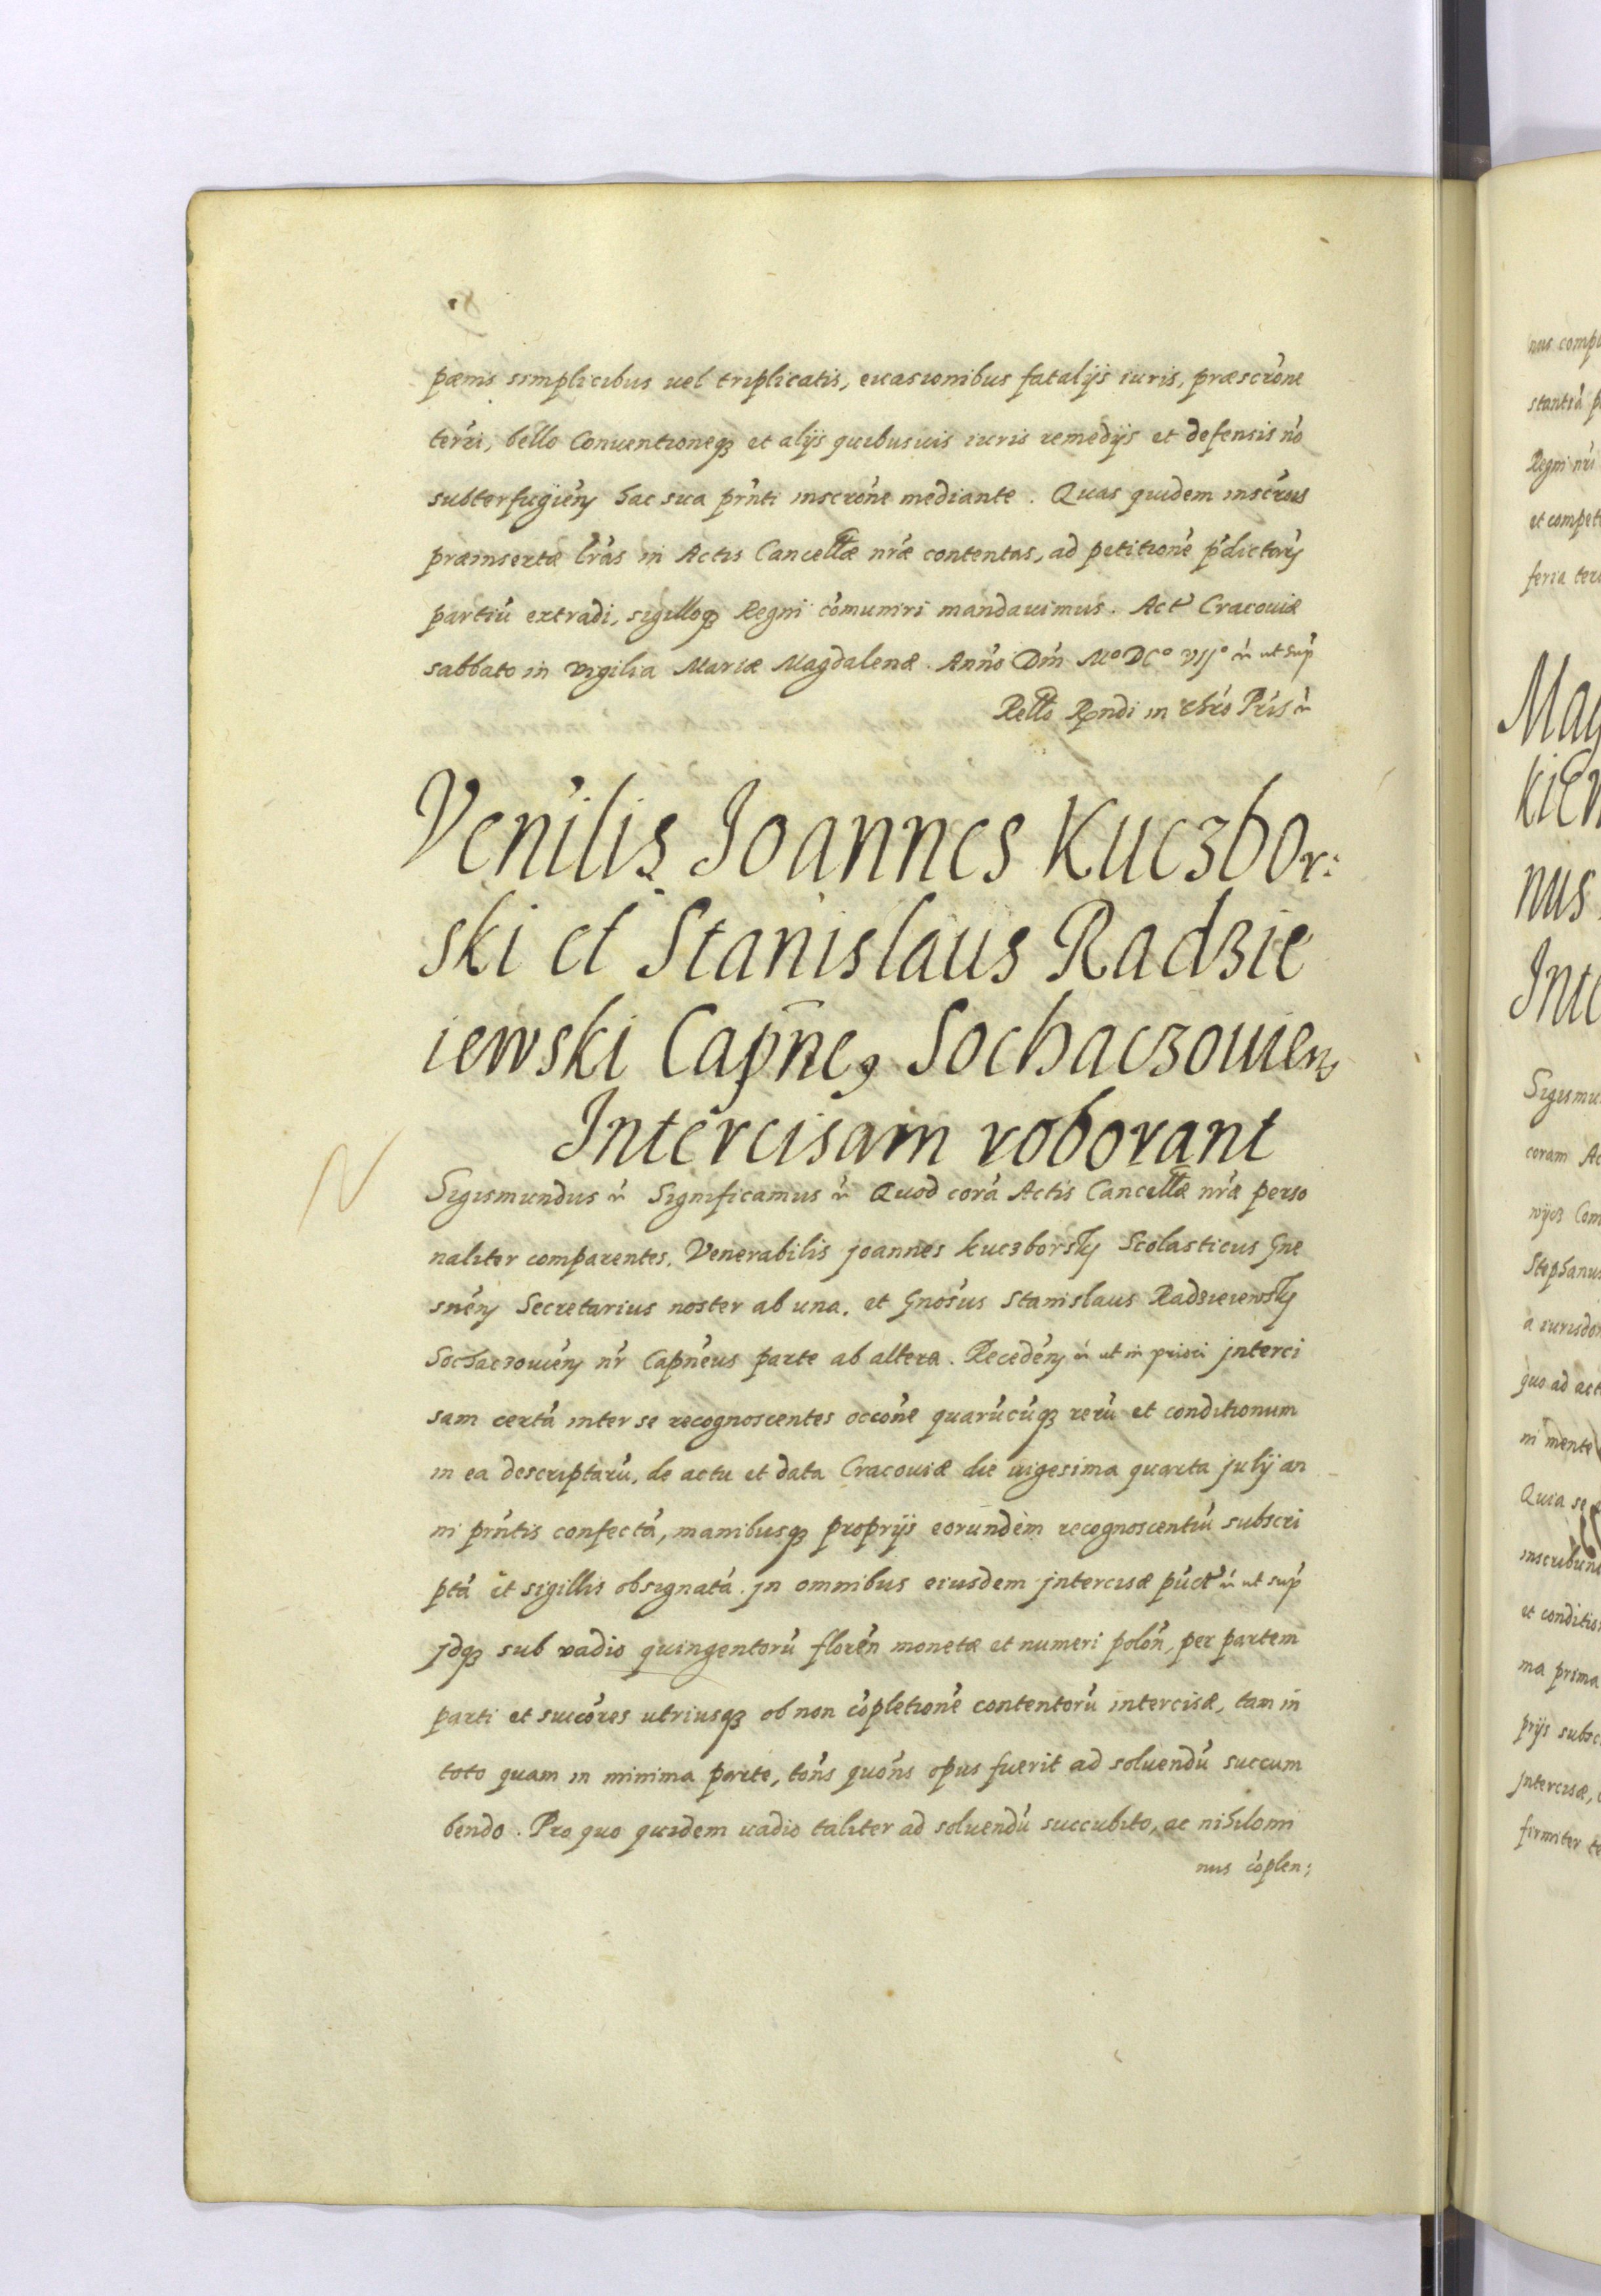 pœnis simplicibus uel triplicatis, euasionibus fatalijs iuris, præscrõne
terri, bello Conuentioneqȝ et alijs quibusuis iuris remedijs et defensis nõ
subterfugien̄ hac sua prn̄ti inscrõne mediante. Quas quidem inscrõis
præinsertæ lr̄as in Actis Cancellæ nr̄æ contentas, ad petitionē pdictorȝ
partiū extradi, sigilloqȝ Regni cōmuniri mandauimus. Act̄ Cracouiæ
sabbato in vigilia Mariæ Magdalenæ. Anno Dm̄ Mº DCº VIJº ut sup
Rellō Rndi in Chrō Pr̄is
Venīlis Joannes Kuczbor:
ski et Stanislaus Radzie
iewski Capne9 Sochaczouien
Intercisam roborant
Sigismundus Significamus Quod corā Actis Cancellæ nr̄æ perso
naliter comparentes. Venerabilis joannes kuczborsky Scolasticus Gne
snēn Secretarius noster ab una. et Gnōsus Stanislaus Radzieiewsky
Sochaczouiēn nr̄ Capnēus parte ab altera. Recedēn ut in priori jnterci
sam certā inter se recognoscentes occōne quarūcūqȝ rerū et conditionum
in ea descriptarū, de actu et data Cracouiæ die uigesima quarta julij an
ni prn̄tis confectā, manibusqȝ proprijs eorundem recognoscentiū subscri
ptā et sigillis obsignatā. jn omnibus eiusdem jntercisæ pūct̄ ut sup
jdqȝ sub vadio quingentorū florēn monetæ et numeri polōn, per partem
parti et succōres utriusqȝ ob non cōpletionē contentorū intercisæ, tam in
toto quam in minima parte, tōns quōns opus fuerit ad soluendū succum
bendo. Pro quo quidem uadio taliter ad soluendū succubito, ac nihilomi
nus cōplen: